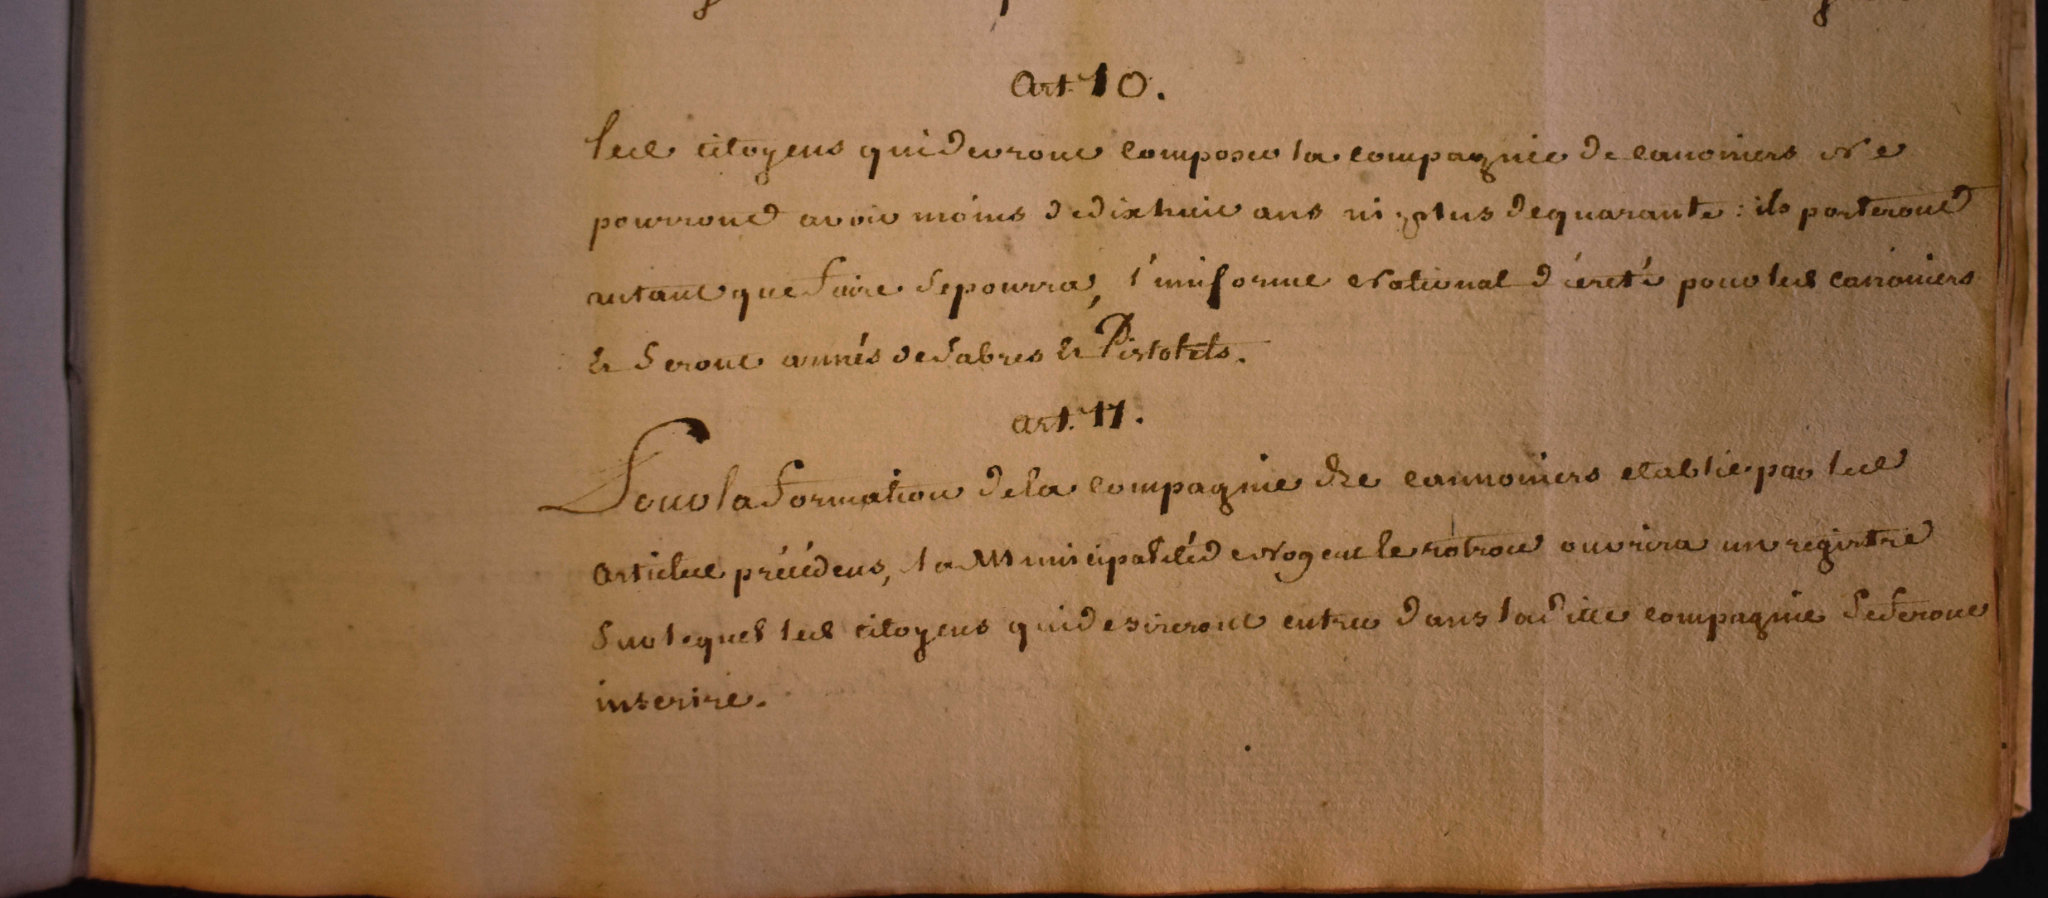 Art. 10.
les citoyens qui devront composer la compagnie de canoniers Ne
pourront avoir moins de dix huit ans ni plus de quarante : ils porteront
autant que faire se pourra, l'uniforme National décrété pour les canoniers
& seront armés de sabres & Pistolets.
Art. 11.
Pour la formation de la compagnie de cannoniers etablie par les
articles précédens, la Municipalité de Nogent le rotrou ouvrira un registre
sur lequel les citoyens qui desireront entrer dans la dite compagnie se feront
inscrire.